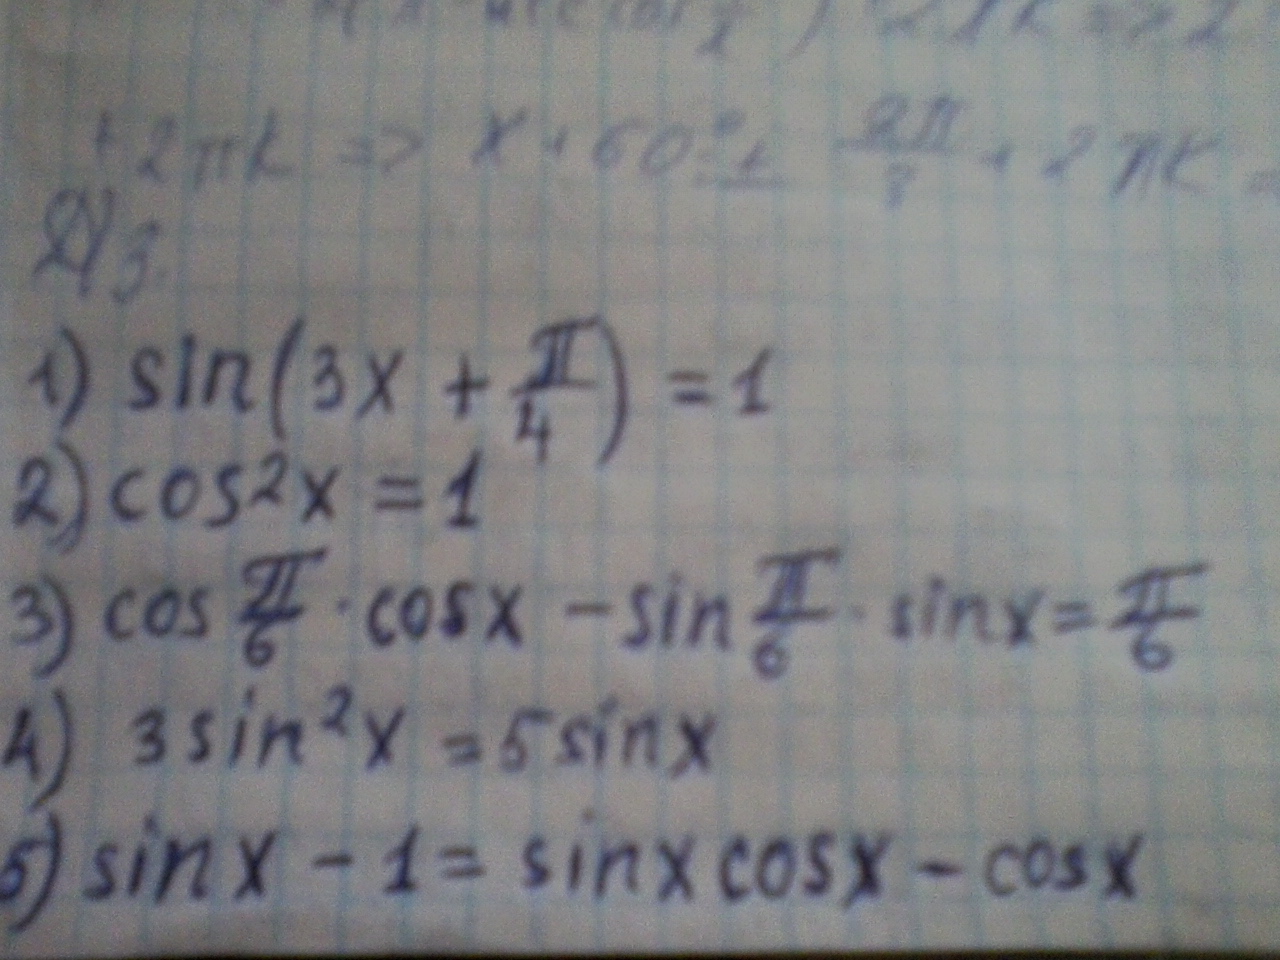 +2πk => x+60°=± 2π/3 + 2πk =
Д/з.
1) sin(3x + π/4) = 1
2) cos²x = 1
3) cos π/6 · cosx - sin π/6 · sinx = π/6
4) 3sin²x = 5sinx
5) sinx - 1 = sinxcosx - cosx